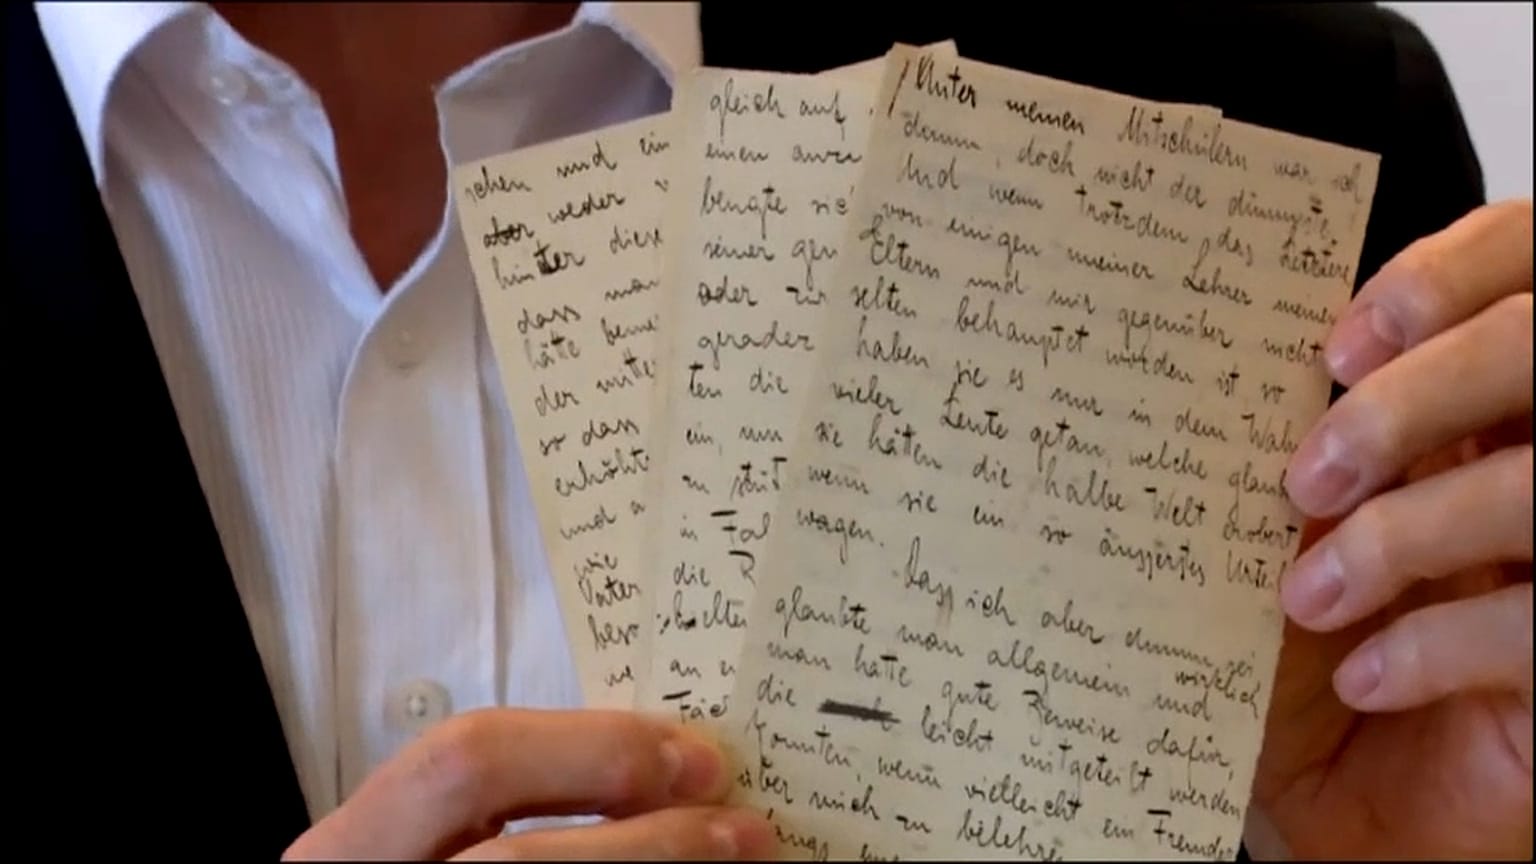 schen und ein
aber weder
hinter diese
dass man
hätte
der mitte
so dass
erhöht
und a
wie
Vater
beso
we
gleich auf
einen
beugte sic
seiner gen
oder zur
gerader
ten die
ein, um
zu
in Fal
die R
an
Unter meinen Mitschülern war ich
dumm, doch nicht der dümmste.
Und wenn trotzdem das Letztere
von einigen meiner Lehrer meinen
Eltern und mir gegenüber nicht
selten behauptet worden ist, so
haben sie es nur in dem Wahn
vieler Leute getan, welche glaub
sie hätten die halbe Welt erobert
wenn sie ein so äusserstes Urteil
wagen.
Dass ich aber dumm sei
glaubte man allgemein und wirklich
man hatte gute Beweise dafür,
die leicht mitgeteilt werden
konnten, wenn vielleicht ein Fremder
über mich zu belehre